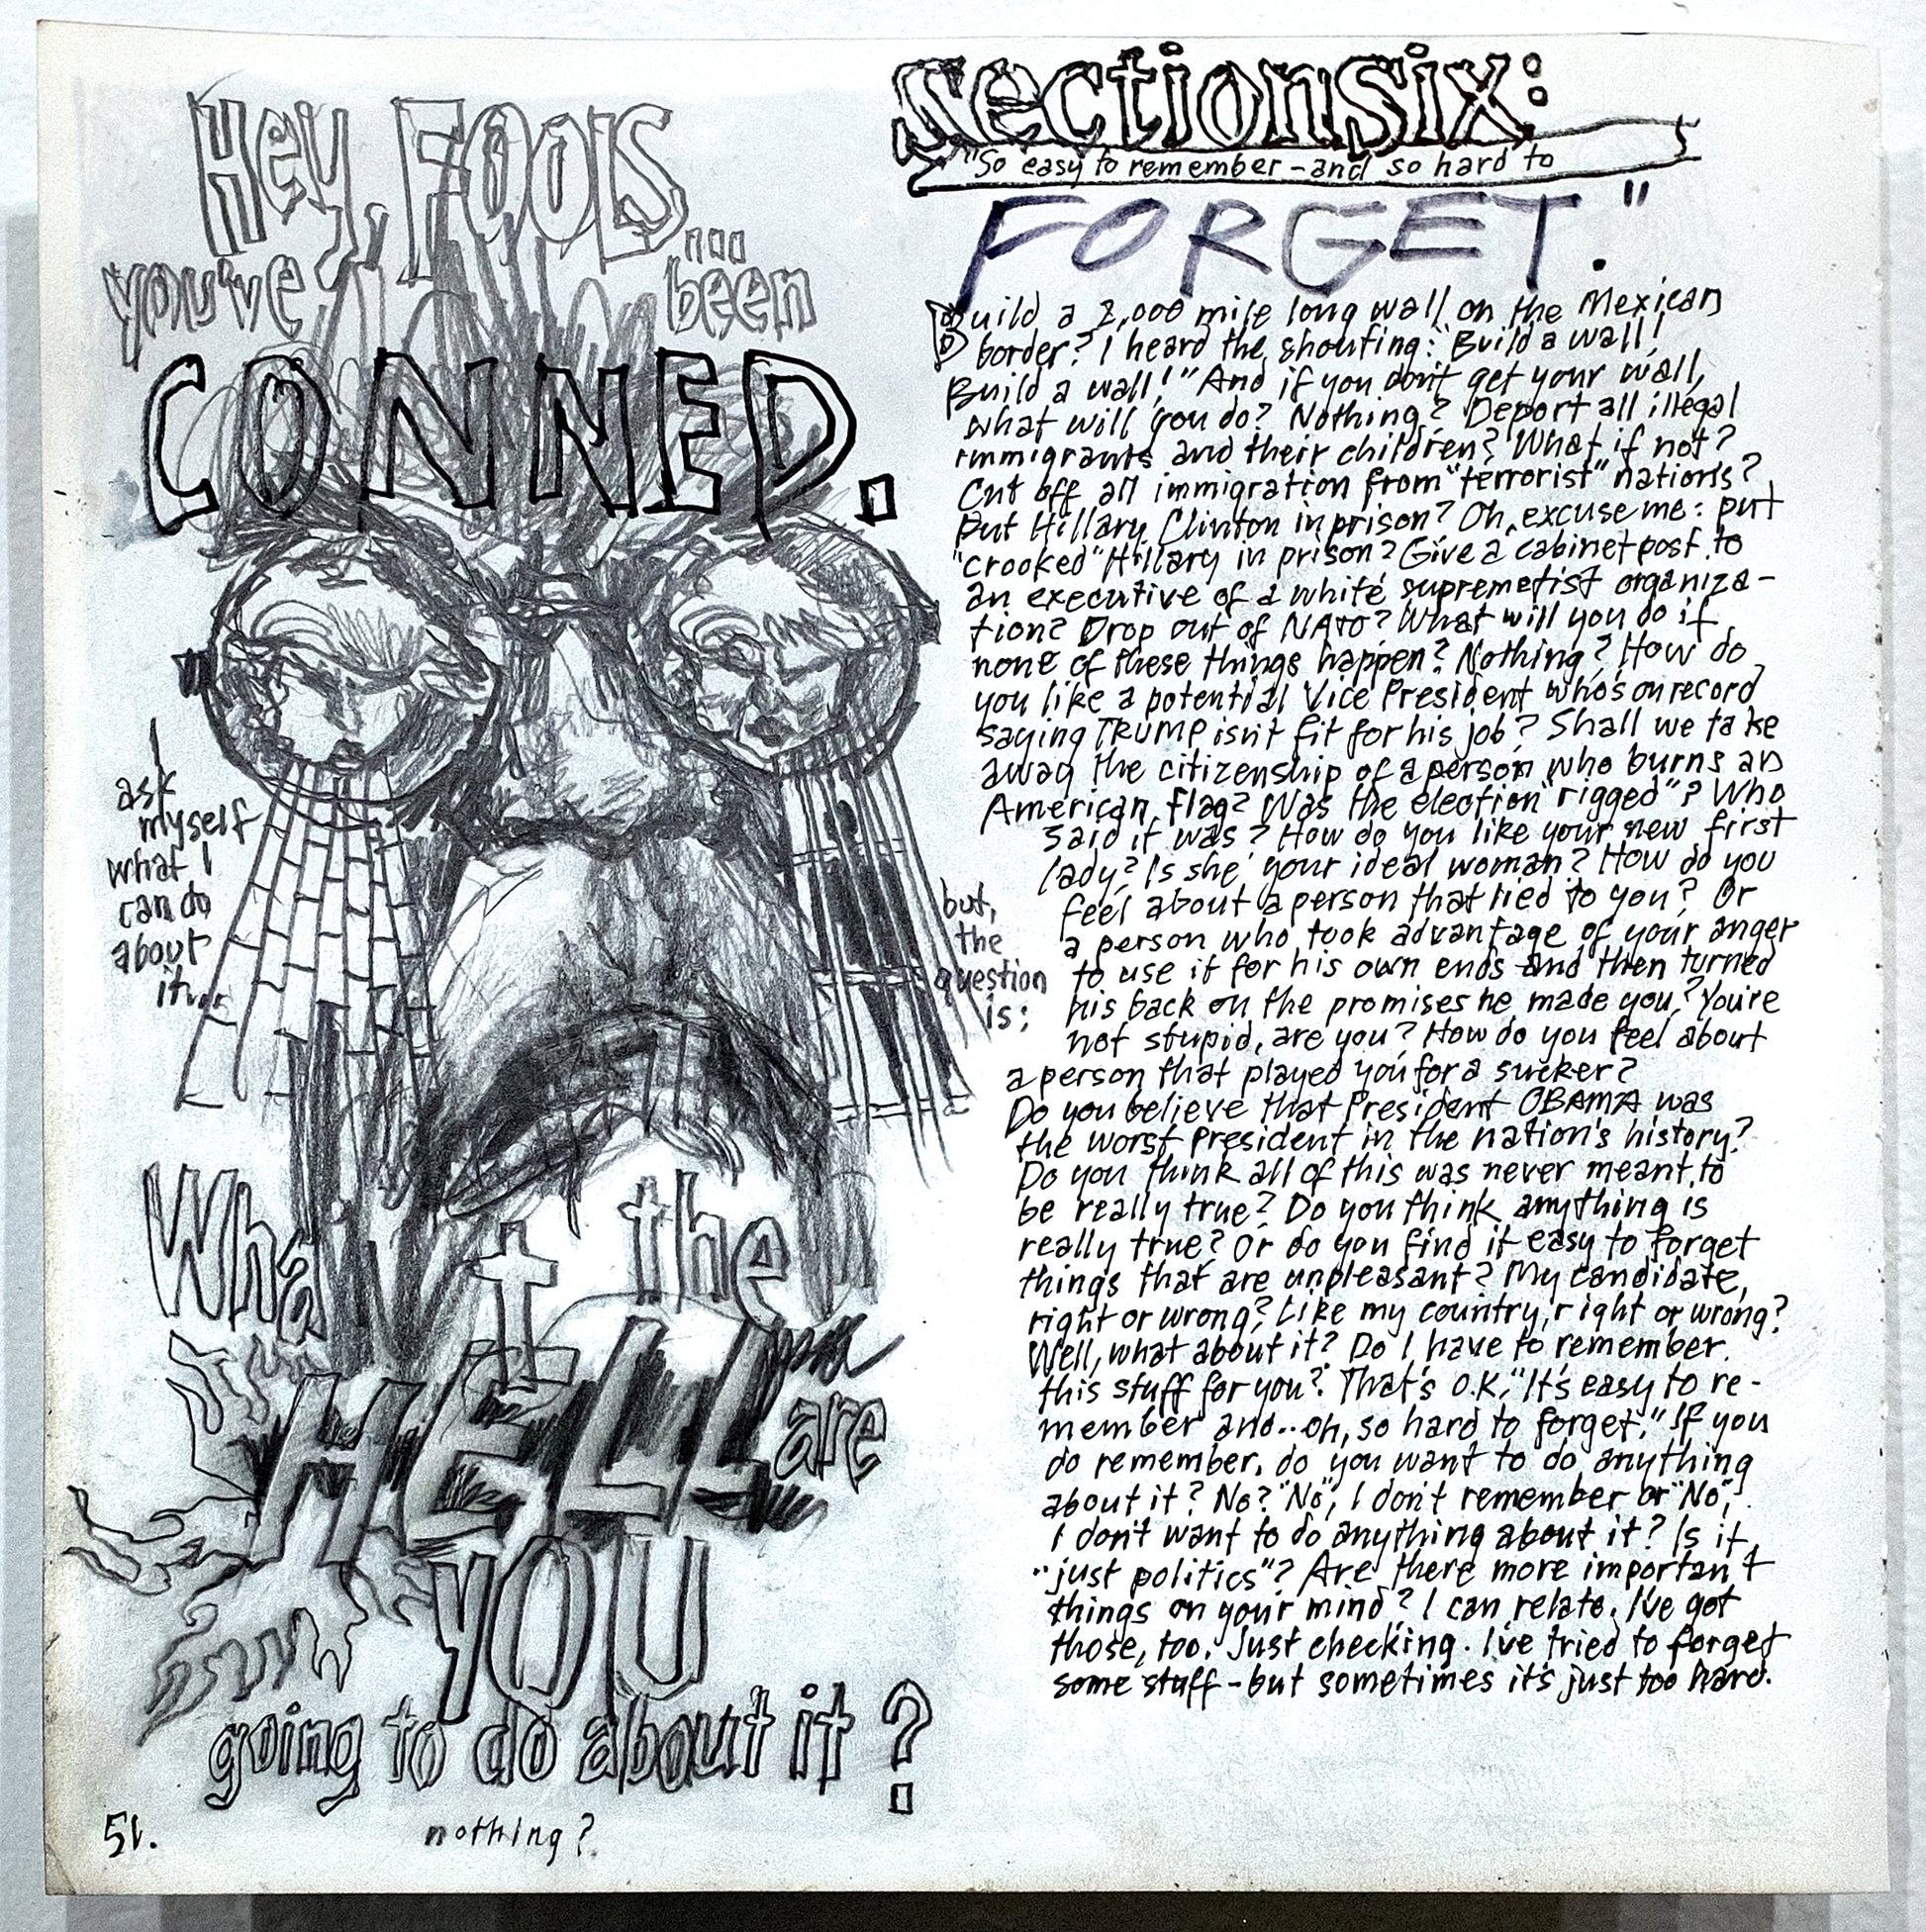 Hey, FOOLS...
you've been
CONNED.
I
ask
myself
what I
can do
about
it...
but,
the
question
is:
What the
HELL are
YOU
going to do about it?
nothing?
51.
Section Six:
"So easy to remember - and so hard to
FORGET."
Build a 2,000 mile long wall on the Mexican
border? I heard the shouting: "Build a wall!
Build a wall!" And if you don't get your wall,
what will you do? Nothing? Deport all illegal
immigrants and their children? What if not?
Cut off all immigration from "terrorist" nations?
Put Hillary Clinton in prison? Oh, excuse me: put
"crooked" Hillary in prison? Give a cabinet post to
an executive of a white supremetist organiza-
tion? Drop out of NATO? What will you do if
none of these things happen? Nothing? How do
you like a potential Vice President who's on record
saying TRUMP isn't fit for his job? Shall we take
away the citizenship of a person who burns an
American flag? Was the election "rigged"? Who
said it was? How do you like your new first
lady? Is she your ideal woman? How do you
feel about a person that lied to you? Or
a person who took advantage of your anger
to use it for his own ends and then turned
his back on the promises he made you? You're
not stupid, are you? How do you feel about
a person that played you for a sucker?
Do you believe that President OBAMA was
the worst President in the nation's history?
Do you think all of this was never meant to
be really true? Do you think anything is
really true? Or do you find it easy to forget
things that are unpleasant? My candidate,
right or wrong? Like my country, right or wrong?
Well, what about it? Do I have to remember
this stuff for you? That's O.K. "It's easy to re-
member and.. oh, so hard to forget." If you
do remember, do you want to do anything
about it? No? "No", I don't remember or "No",
I don't want to do anything about it? Is it
"just politics"? Are there more important
things on your mind? I can relate. I've got
those, too. Just checking. I've tried to forget
some stuff - but sometimes it's just too hard.